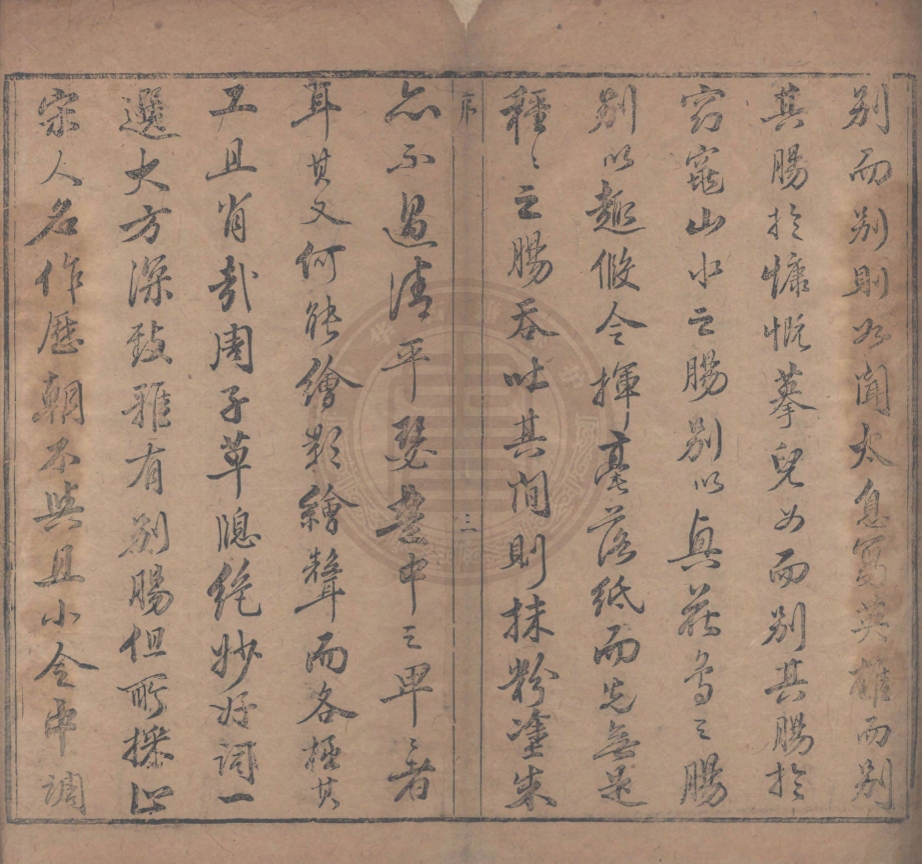 別而別則如聞太息寫英雄而別
其腸於慷慨摹兒女而別其腸於
窈窕山水之腸別以真花鳥之腸
別以趣倐令揮毫落紙而先無是
種〻之腸吞吐其間則抹粉塗朱
序
三
亦不過清平瑟中之卑〻者
耳其又何能繪影繪聲而各極其
工且肖哉周子草隐絶妙好詞一
選大方深致雅有別腸但所採止
宋人名作歷朝不與且小令中調